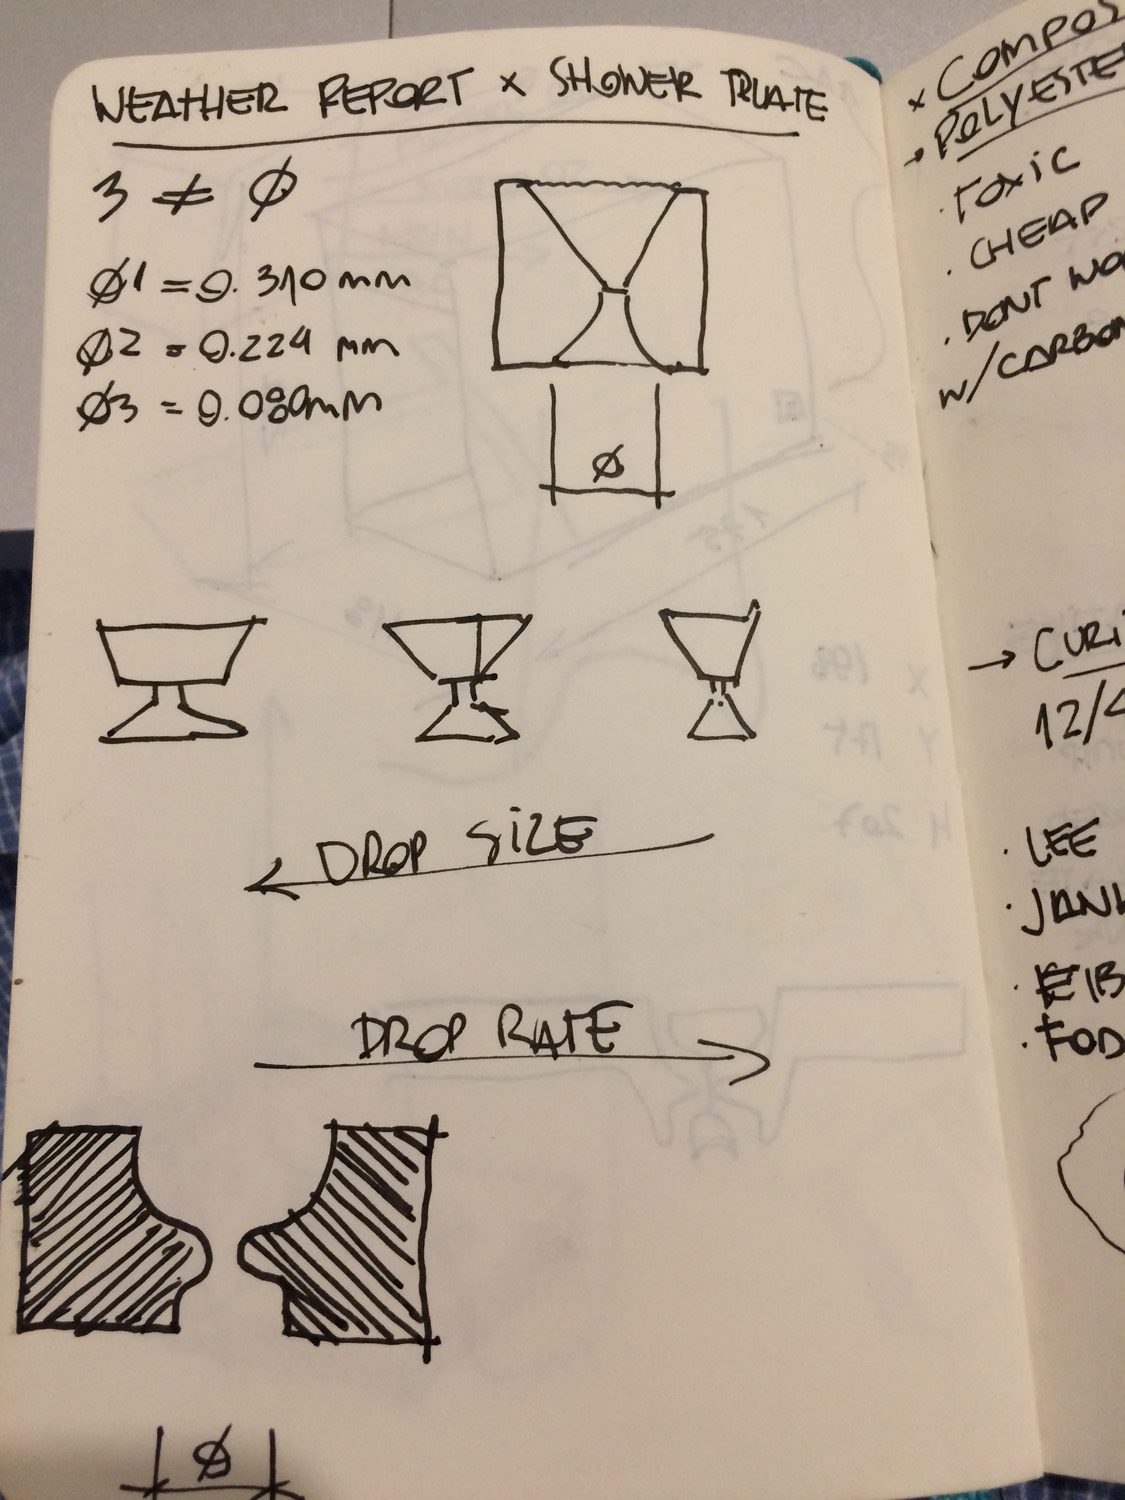 WEATHER REPORT x SHOWER
3 ≠ Ø
Ø1 = 0.310 mm
Ø2 = 0.224 mm
Ø3 = 0.080mm
Ø
DROP SIZE
DROP RATE
Ø
x COMPOS
→ POLYESTE
· TOXIC
· CHEAP
· DONT WO
W/CARBON
→ CURI
12/4
· LEE
· JANK
· EIB
· FOD
X 198
Y 175
H 207
175